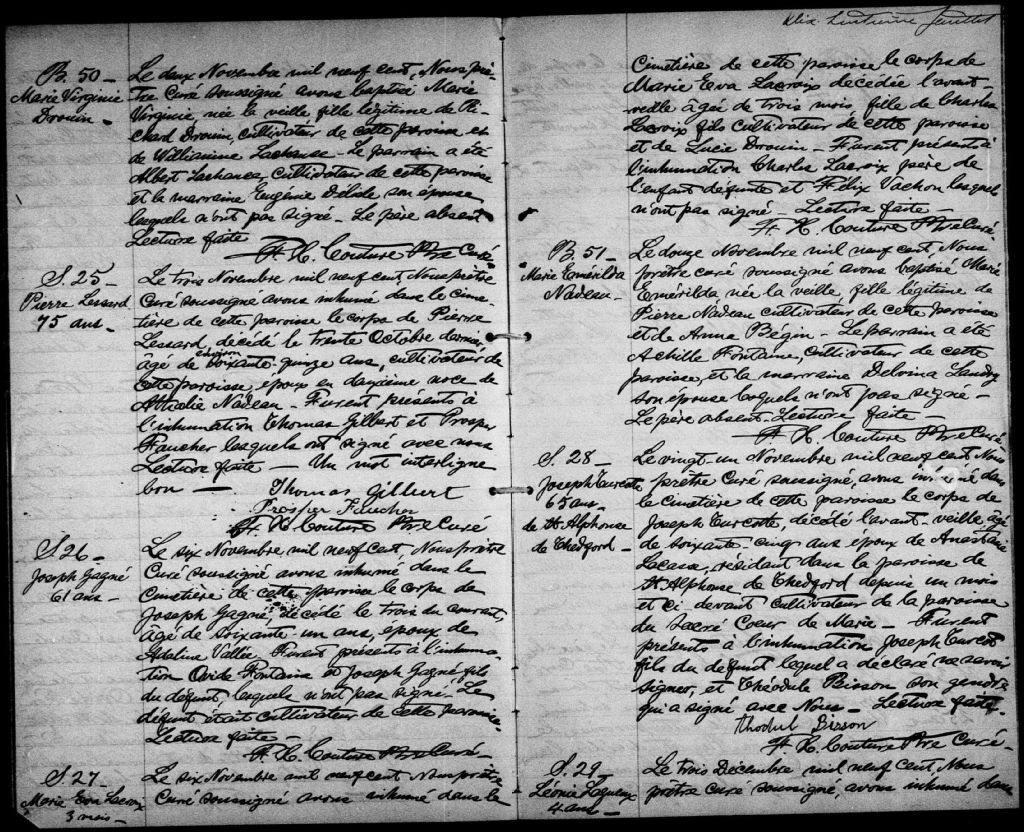 B. 50 —
Marie Virginie
Drouin —
Le deux Novembre mil neuf cent, Nous prê-
tre Curé soussigné avons baptisé Marie
Virginie, née la veille fille légitime de Ri-
chard Drouin, cultivateur de cette paroisse et
de Williamine Lachance — Le parrain a été
Albert Lachance, cultivateur de cette paroisse
et la marraine Eugénie Delisle son épouse
lesquels n'ont pas signé — Le père absent
Lecture faite —
F. X. Couture Ptre Curé
S. 25 —
Pierre Lessard
75 ans —
Le trois Novembre mil neuf cent, Nous prêtre
Curé soussigné avons inhumé dans le cime-
tière de cette paroisse le corps de Pierre
Lessard, décédé le trente Octobre dernier
environ
âgé de soixante-quinze ans, cultivateur de
cette paroisse, époux en deuxième noce de
Athalie Nadeau — Furent présents à
l'inhumation Thomas Gilbert et Prosper
Faucher lesquels ont signé avec nous
Lecture faite — Un mot interligne
bon —
Thomas Gilbert
Prosper Faucher
F. X. Couture Ptre Curé
S. 26 —
Joseph Gagné
61 ans —
Le six Novembre mil neuf cent, Nous prêtre
Curé soussigné avons inhumé dans le
Cimetière de cette paroisse le corps de
Joseph Gagné, décédé le trois du courant,
âgé de soixante-un ans, époux de
Adeline Vallée. Furent présents à l'inhuma-
tion Ovide Fontaine et Joseph Gagné, fils
du défunt, lesquels n'ont pas signé. Le
défunt était cultivateur de cette paroisse
Lecture faite —
F. X. Couture Ptre Curé —
S. 27
Marie Eva Lacroix
3 mois —
Le six Novembre mil neuf cent Nous prêtre
Curé soussigné avons inhumé dans le
Juillet
Cimetière de cette paroisse le corps de
Marie Eva Lacroix décédée l'avant-
veille âgé de trois mois, fille de Charles
Lacroix fils cultivateur de cette paroisse
et de Lucie Drouin — Furent présents à
l'inhumation Charles Lacroix père de
l'enfant défunte et Félix Vachon lesquels
n'ont pas signé — Lecture faite —
F. X. Couture Ptre Curé
B. 51 —
Marie Emérilda
Nadeau —
Le douze Novembre mil neuf cent, Nous
prêtre curé soussigné avons baptisé Marie
Emérilda, née la veille, fille légitime de
Pierre Nadeau cultivateur de cette paroisse
et de Anna Bégin — Le parrain a été
Achille Fontaine, cultivateur de cette
paroisse, et la marraine Delvina Landry
son épouse lesquels n'ont pas signé —
Le père absent — Lecture faite —
F. X. Couture Ptre Curé
S. 28 —
Joseph Turcotte
65 ans —
de St Alphonse
de Thedford —
Le vingt-un Novembre mil neuf cent Nous
prêtre Curé soussigné, avons inhumé dans
le cimetière de cette paroisse le corps de
Joseph Turcotte, décédé l'avant-veille âgé
de soixante-cinq ans époux de Anastasie
Lacasse, résidant dans la paroisse de
St Alphonse de Thedford depuis un mois
et ci devant cultivateur de la paroisse
du Sacré Coeur de Marie — Furent
présents à l'inhumation Joseph Turcotte
fils du défunt lequel a déclaré ne savoir
signer, et Théodule Bisson son gendre
qui a signé avec Nous — Lecture faite —
Thodul Bisson
F. X. Couture Ptre Curé —
S. 29
Léonie
4 ans —
Le trois Décembre mil neuf cent, Nous
prêtre curé soussigné, avons inhumé dans